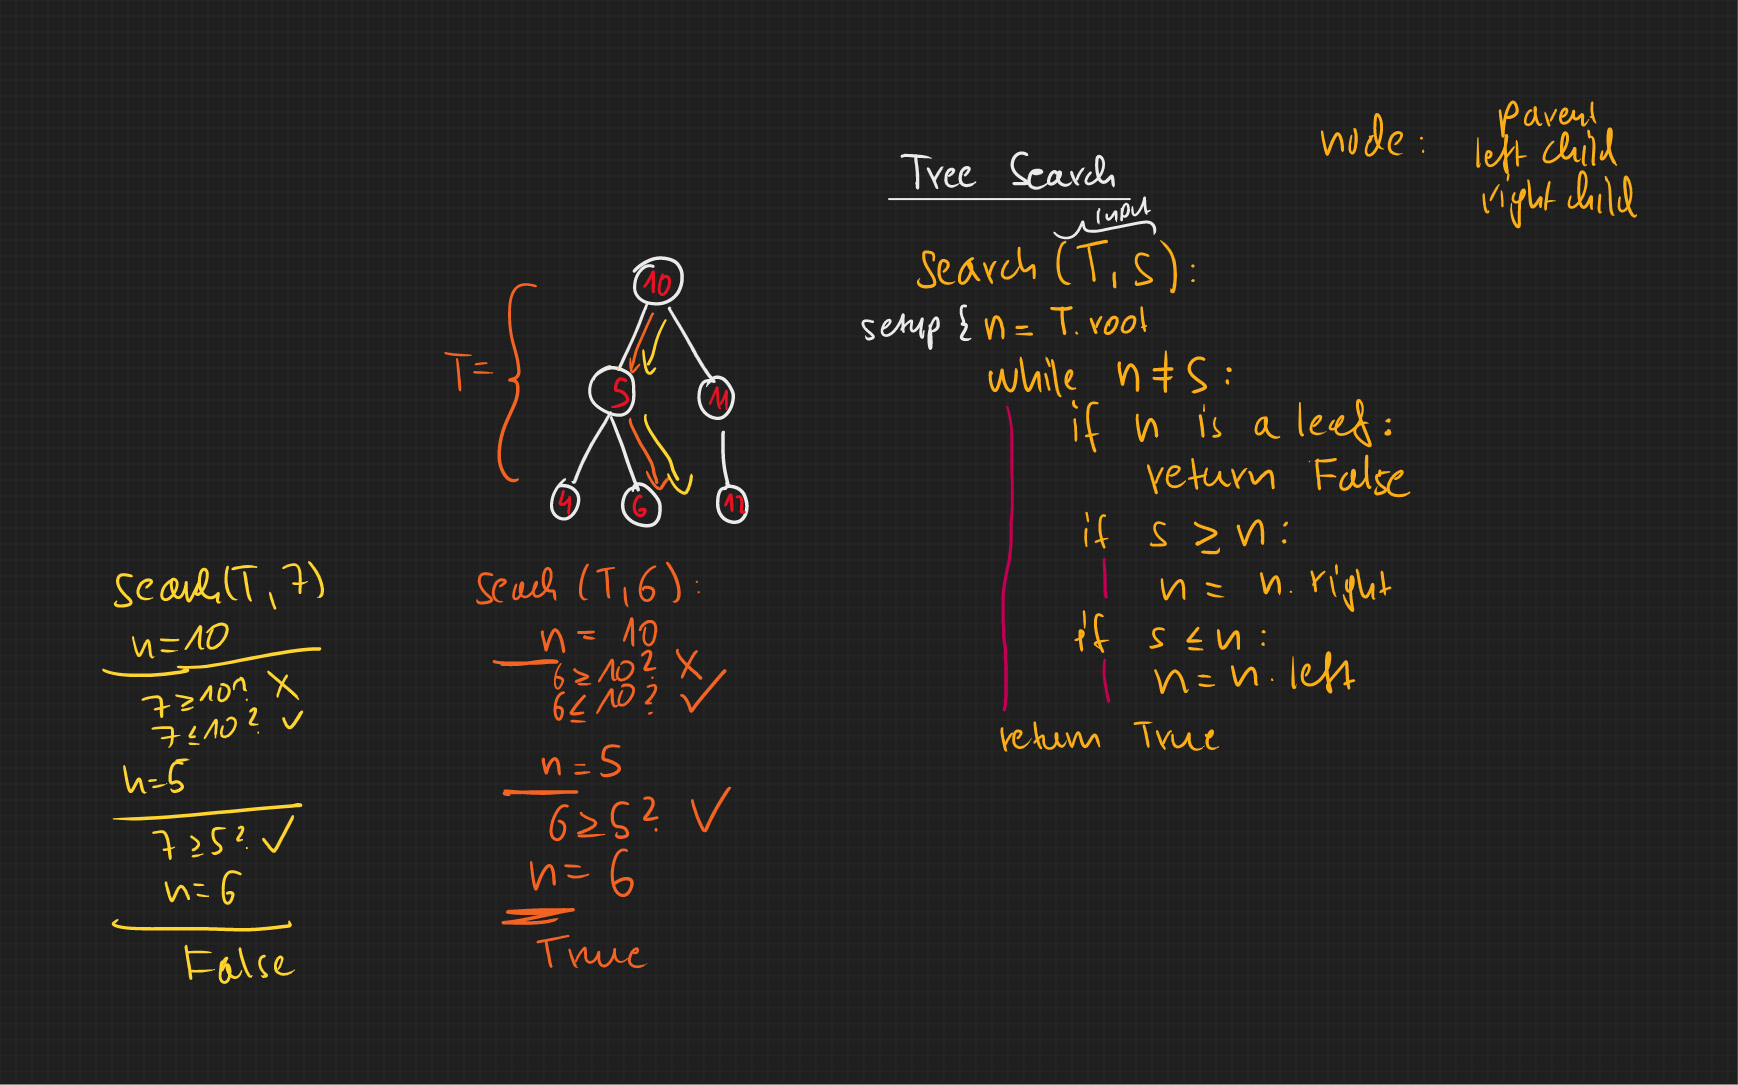 node: parent
left child
right child
Tree Search
input
search (T, s):
setup { n = T.root
while n ≠ s:
if n is a leaf:
return False
if s ≥ n:
n = n.right
if s ≤ n:
n = n.left
return True
T =
10
5
11
4
6
12
Search(T, 7)
n=10
7 ≥ 10? X
7 ≤ 10? ✓
n=5
7 ≥ 5? ✓
n= 6
False
Seach (T, 6):
n = 10
6 ≥ 10? X
6 ≤ 10? ✓
n = 5
6 ≥ 5? ✓
n = 6
True